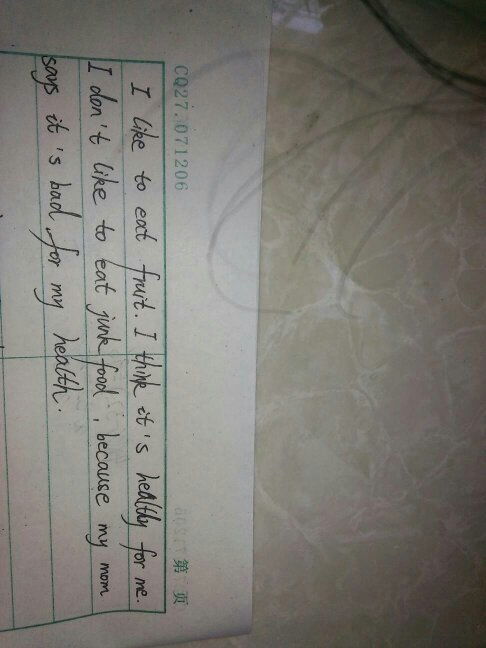 CQ27.071206 第 页
I like to eat fruit. I think it's healthy for me.
I don't like to eat junk food, because my mom
says it's bad for my health.